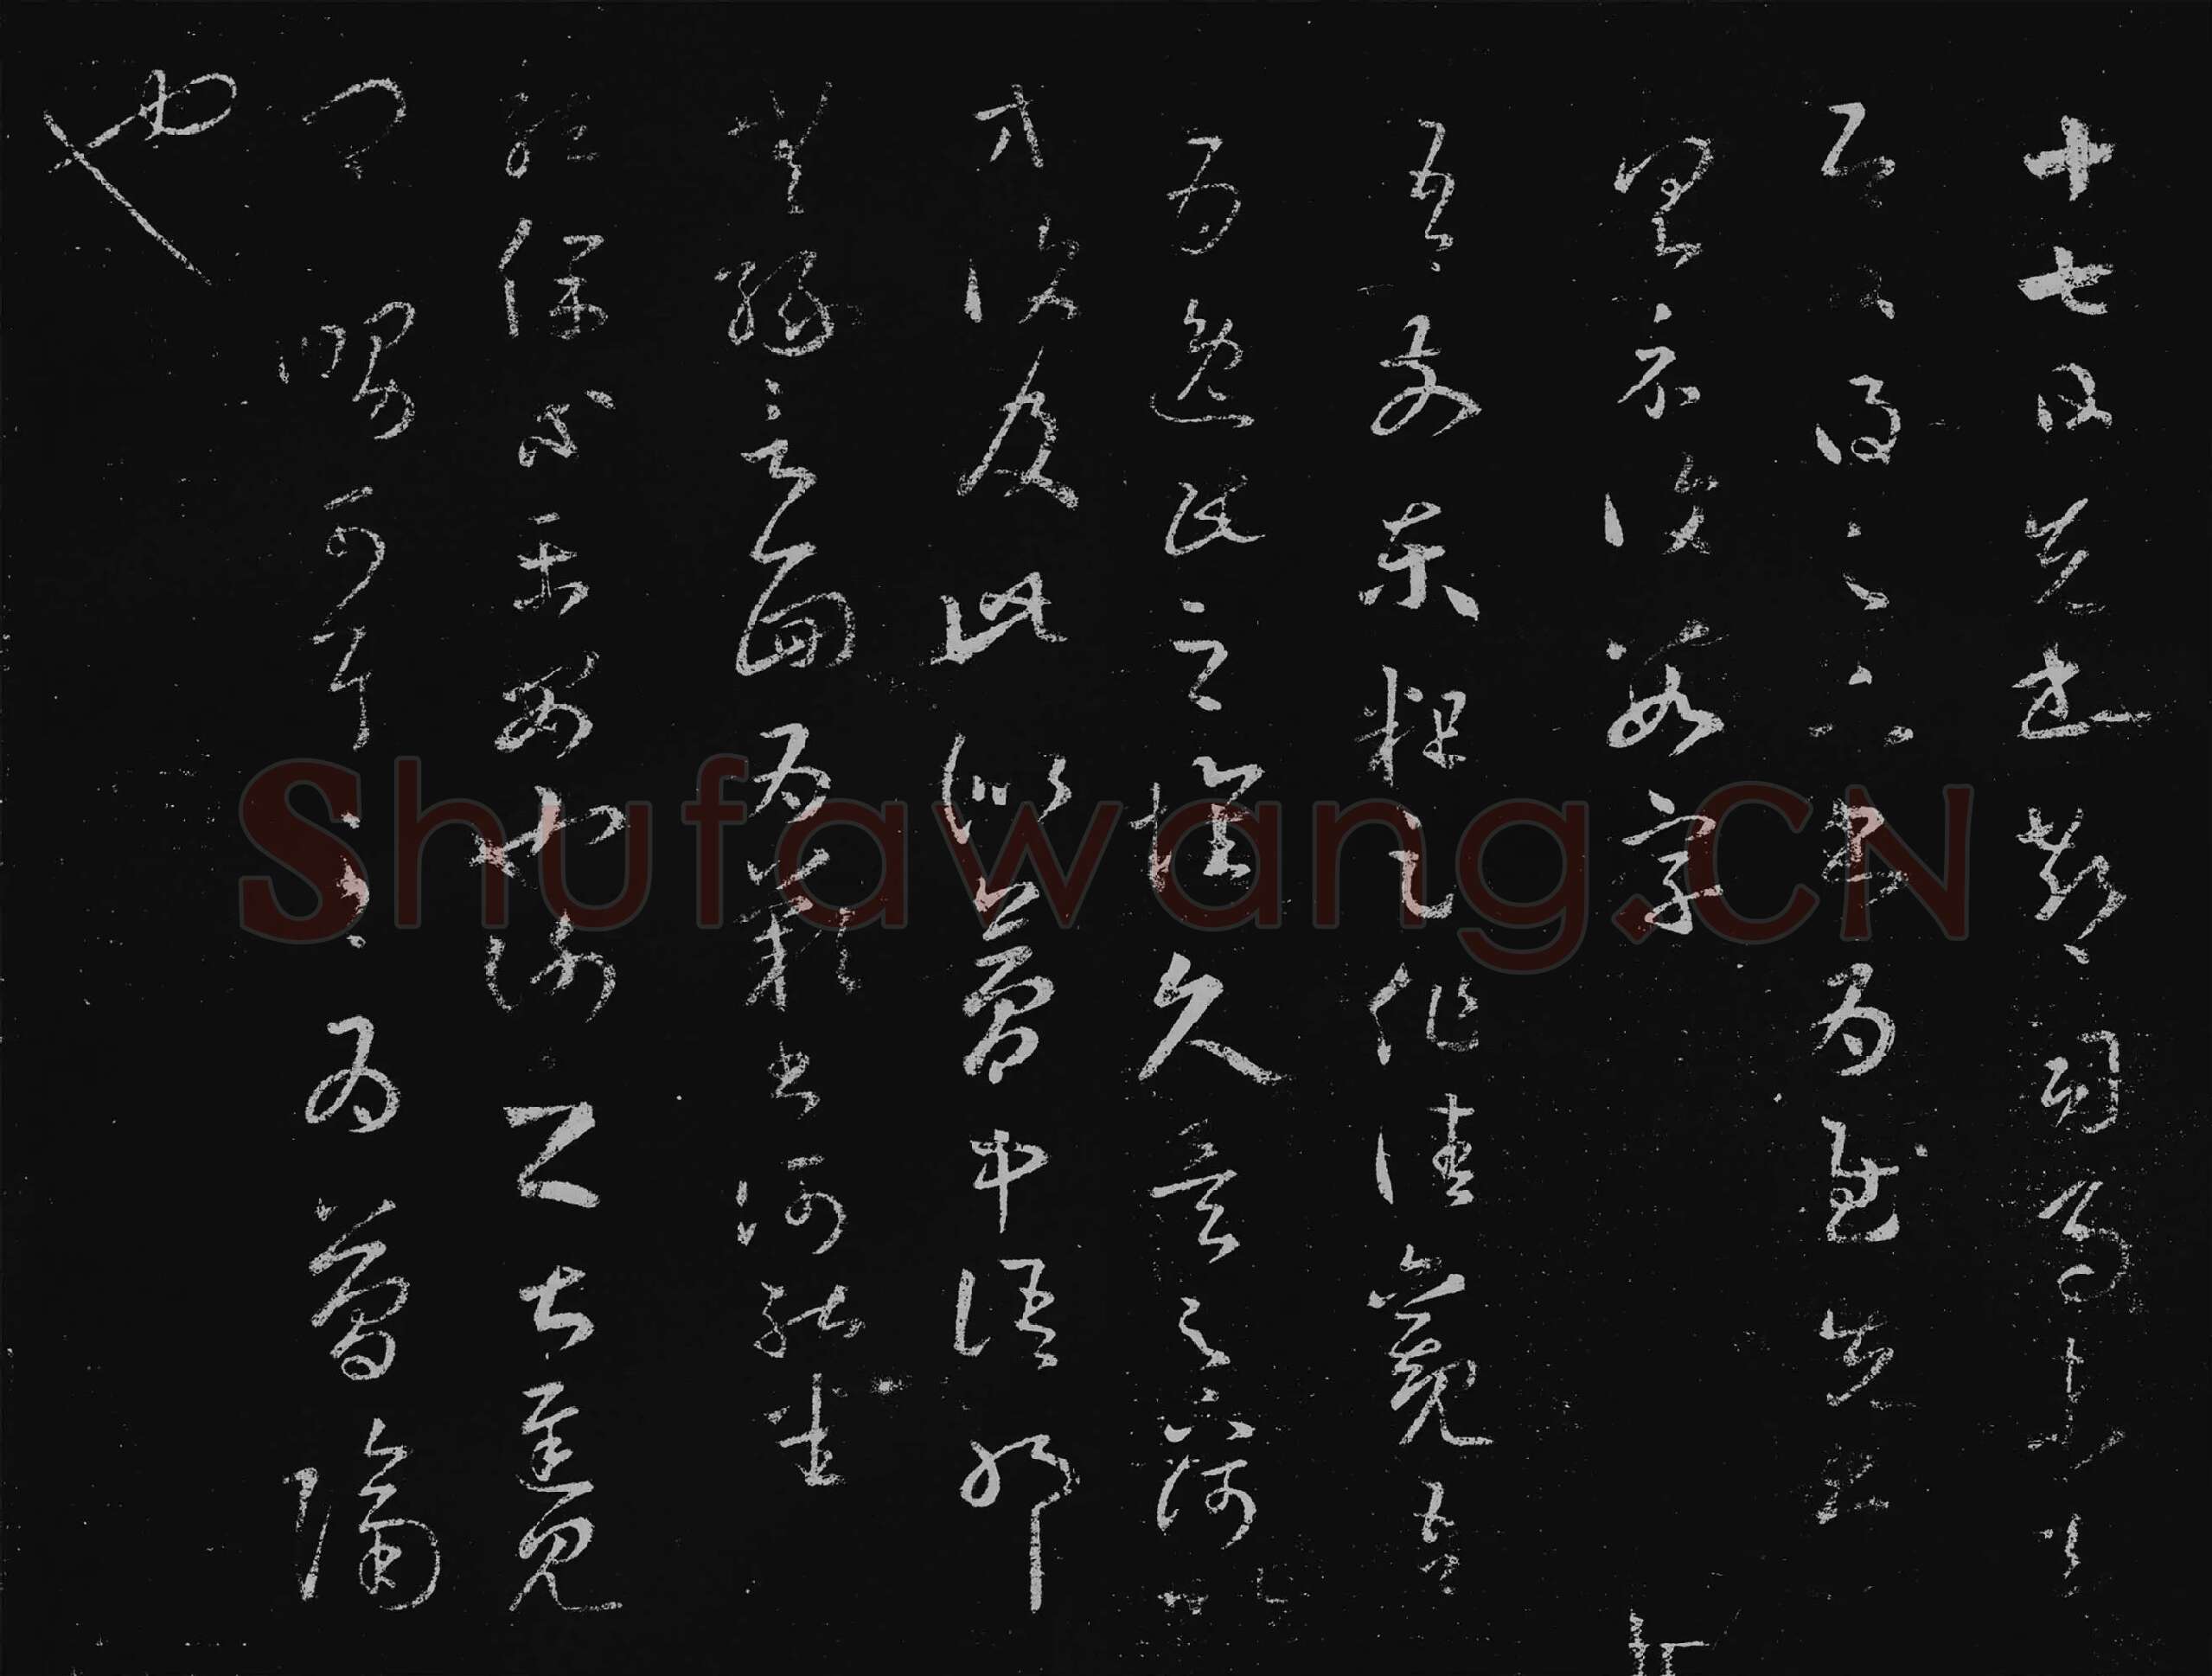 十七日先書郗司馬未去
即日得足下書為慰先書以
具示復數字
吾前東粗足作佳觀吾
為逸民之懷久矣足下何以
方復及此似夢中語耶
無緣言面為歎書何能悉
龍保等平安也謝之甚遲見
卿舅可耳至為簡隔
也
Shufawang.CN